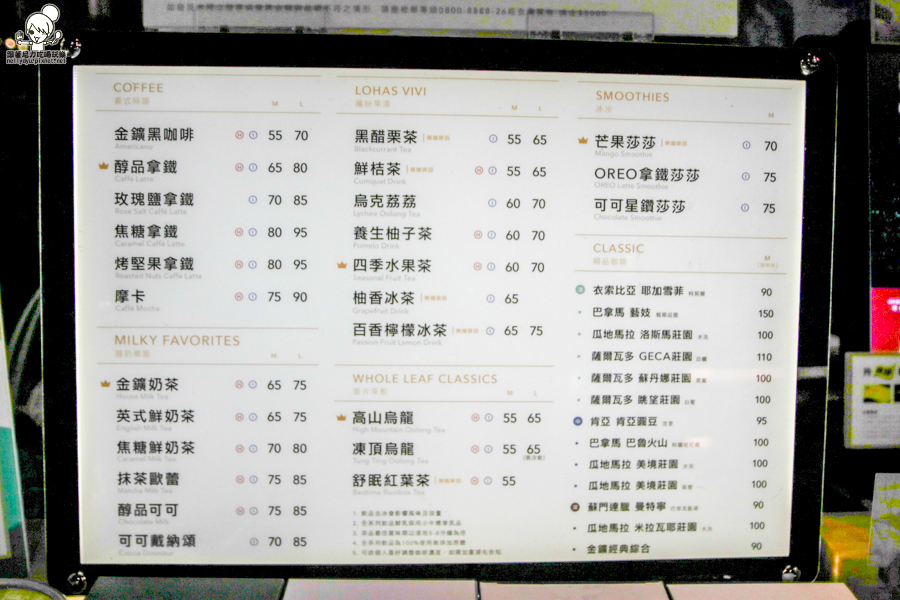 跟著尼力吃喝玩樂
COFFEE
義式特調
M L
金鑛黑咖啡 H I 55 70
Americano
醇品拿鐵 H I 65 80
Caffé Latte
玫瑰鹽拿鐵 I 70 85
Rose Salt Caffé Latte
焦糖拿鐵 H I 80 95
Caramel Caffé Latte
烤堅果拿鐵 H I 80 95
Roasted Nuts Caffé Latte
摩卡 H I 75 90
Caffé Mocha
MILKY FAVORITES
M L
金鑛奶茶 H I 65 75
House Milk Tea
英式鮮奶茶 H I 65 75
English Milk Tea
焦糖鮮奶茶 H I 70 80
Caramel Milk Tea
抹茶歐蕾 H I 75 85
Matcha Milk Tea
醇品可可 H I 75 85
Chocolate Milk
可可戴納頌 I 70 85
Cocoa Dinosaur
LOHAS VIVI
M L
黑醋栗茶 I 55 65
Blackcurrant Tea
鮮桔茶 H I 55 65
Cumquat Drink
烏克荔荔 I 60 70
Lychee Oolong Tea
養生柚子茶 H I 60 70
Pomelo Drink
四季水果茶 H I 60 70
Seasonal Fruit Tea
柚香冰茶 I 65
Grapefruit Drink
百香檸檬冰茶 I 65 75
Passion Fruit Lemon Drink
WHOLE LEAF CLASSICS
原片茶飲
M L
高山烏龍 H I 55 65
High Mountain Oolong Tea
凍頂烏龍 H I 55 65
Tung Ting Oolong Tea
舒眠紅葉茶 H I 55
Bedtime Rooibos Tea
SMOOTHIES
冰沙
M
芒果莎莎 I 70
Mango Smoothie
OREO拿鐵莎莎 I 75
OREO Latte Smoothie
可可星鑽莎莎 I 75
Chocolate Smoothie
CLASSIC
精品咖啡
M
衣索比亞 耶加雪菲 90
巴拿馬 藝妓 150
瓜地馬拉 洛斯馬莊園 水洗 100
薩爾瓦多 GECA莊園 110
薩爾瓦多 蘇丹娜莊園 100
薩爾瓦多 眺望莊園 100
肯亞 肯亞圓豆 95
巴拿馬 巴魯火山 100
瓜地馬拉 美境莊園 水洗 100
瓜地馬拉 美境莊園 100
蘇門達臘 曼特寧 90
瓜地馬拉 米拉瓦耶莊園 水洗 100
金鑛經典綜合 90